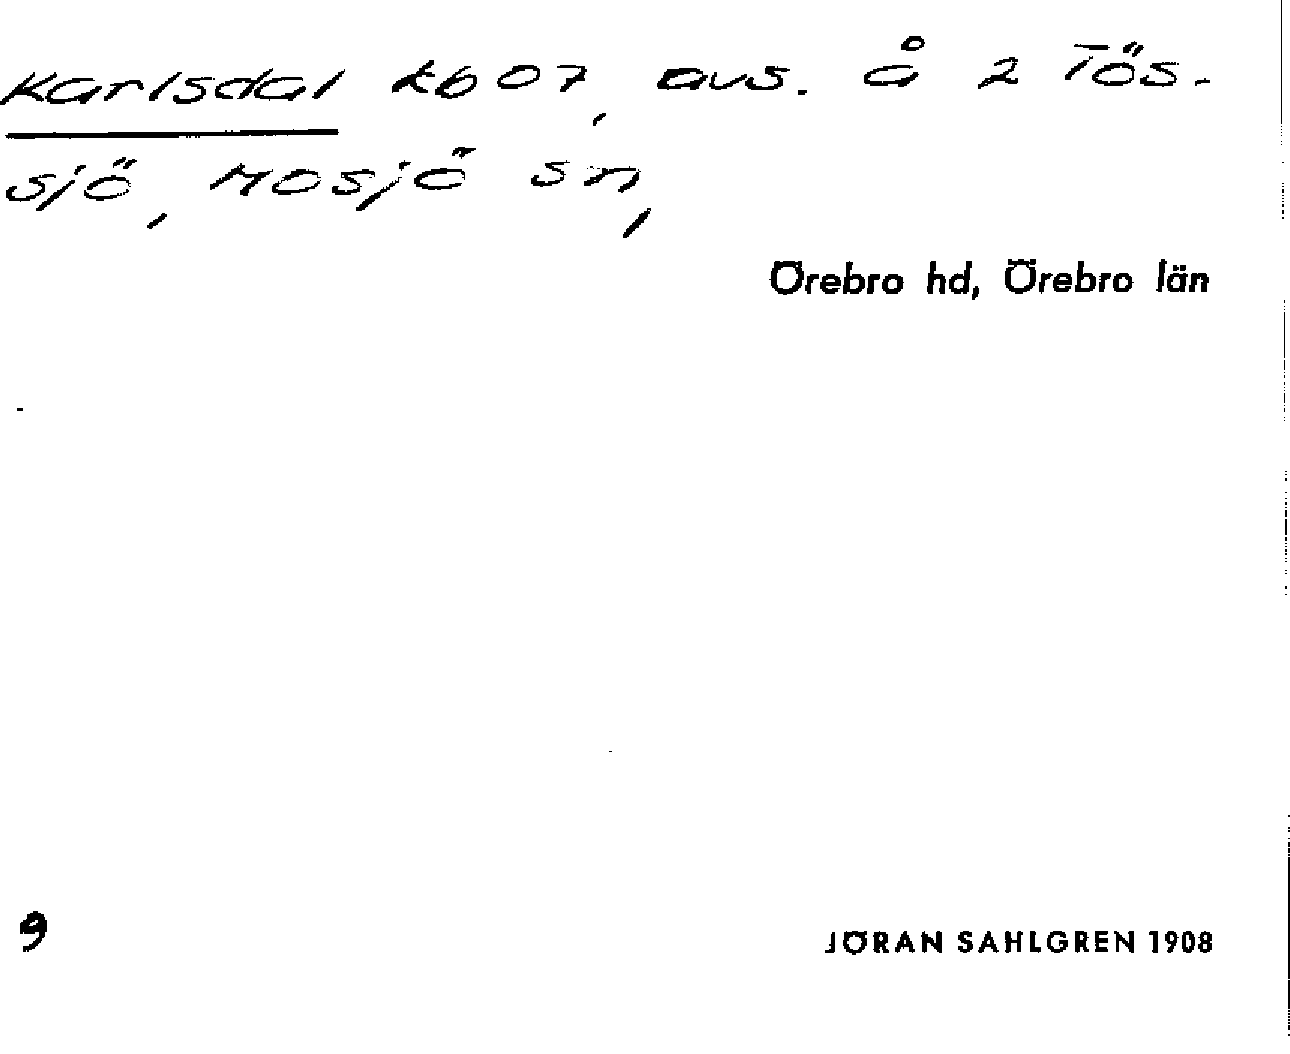 Karlsdal kb 07, avs. å 2 Tös-
sjö, Mosjö sn,
Örebro hd, Örebro län
9
JÖRAN SAHLGREN 1908